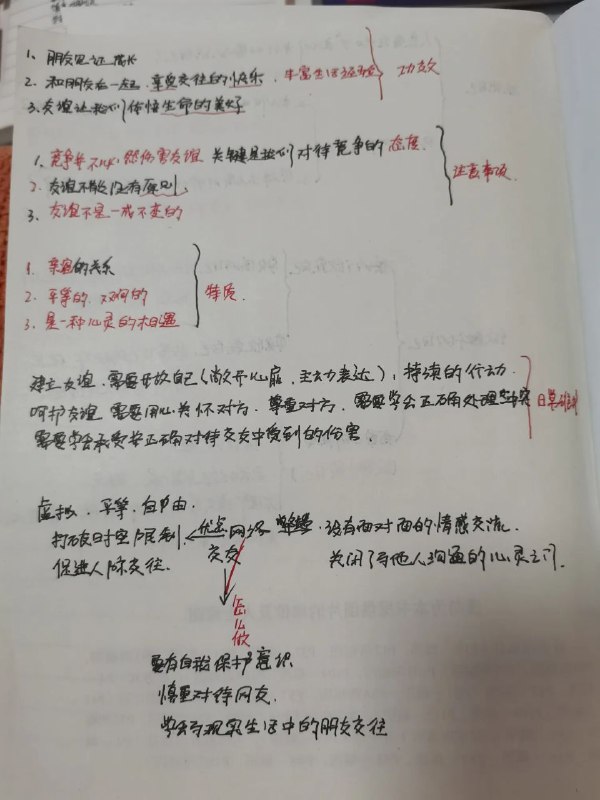 1、朋友见证成长
2、和朋友在一起,享受交往的快乐,丰富生活经验 功效
3.友谊让我们体悟生命的美好
1、竞争并不必然伤害友谊 关键是我们对待竞争的态度
2.友谊不能没有原则 注意事项
3、友谊不是一成不变的
1.亲密的关系
2.平等的.双向的 特质
3是一种心灵的相遇
建立友谊.需要开放自己(敞开心扉,主动表达),持续的行动
呵护友谊.需要用心关怀对方.尊重对方.需要学会正确处理冲突
需要学会承受并正确对待交友中受到的伤害.
虚拟、平等.自由.
打破时空限制. 优点 网络 没有面对面的情感交流.
促进人际交往. 交友 关闭了与他人沟通的心灵之门.
怎么做
要有自我保护意识
慎重对待网友.
学会与现实生活中的朋友交往